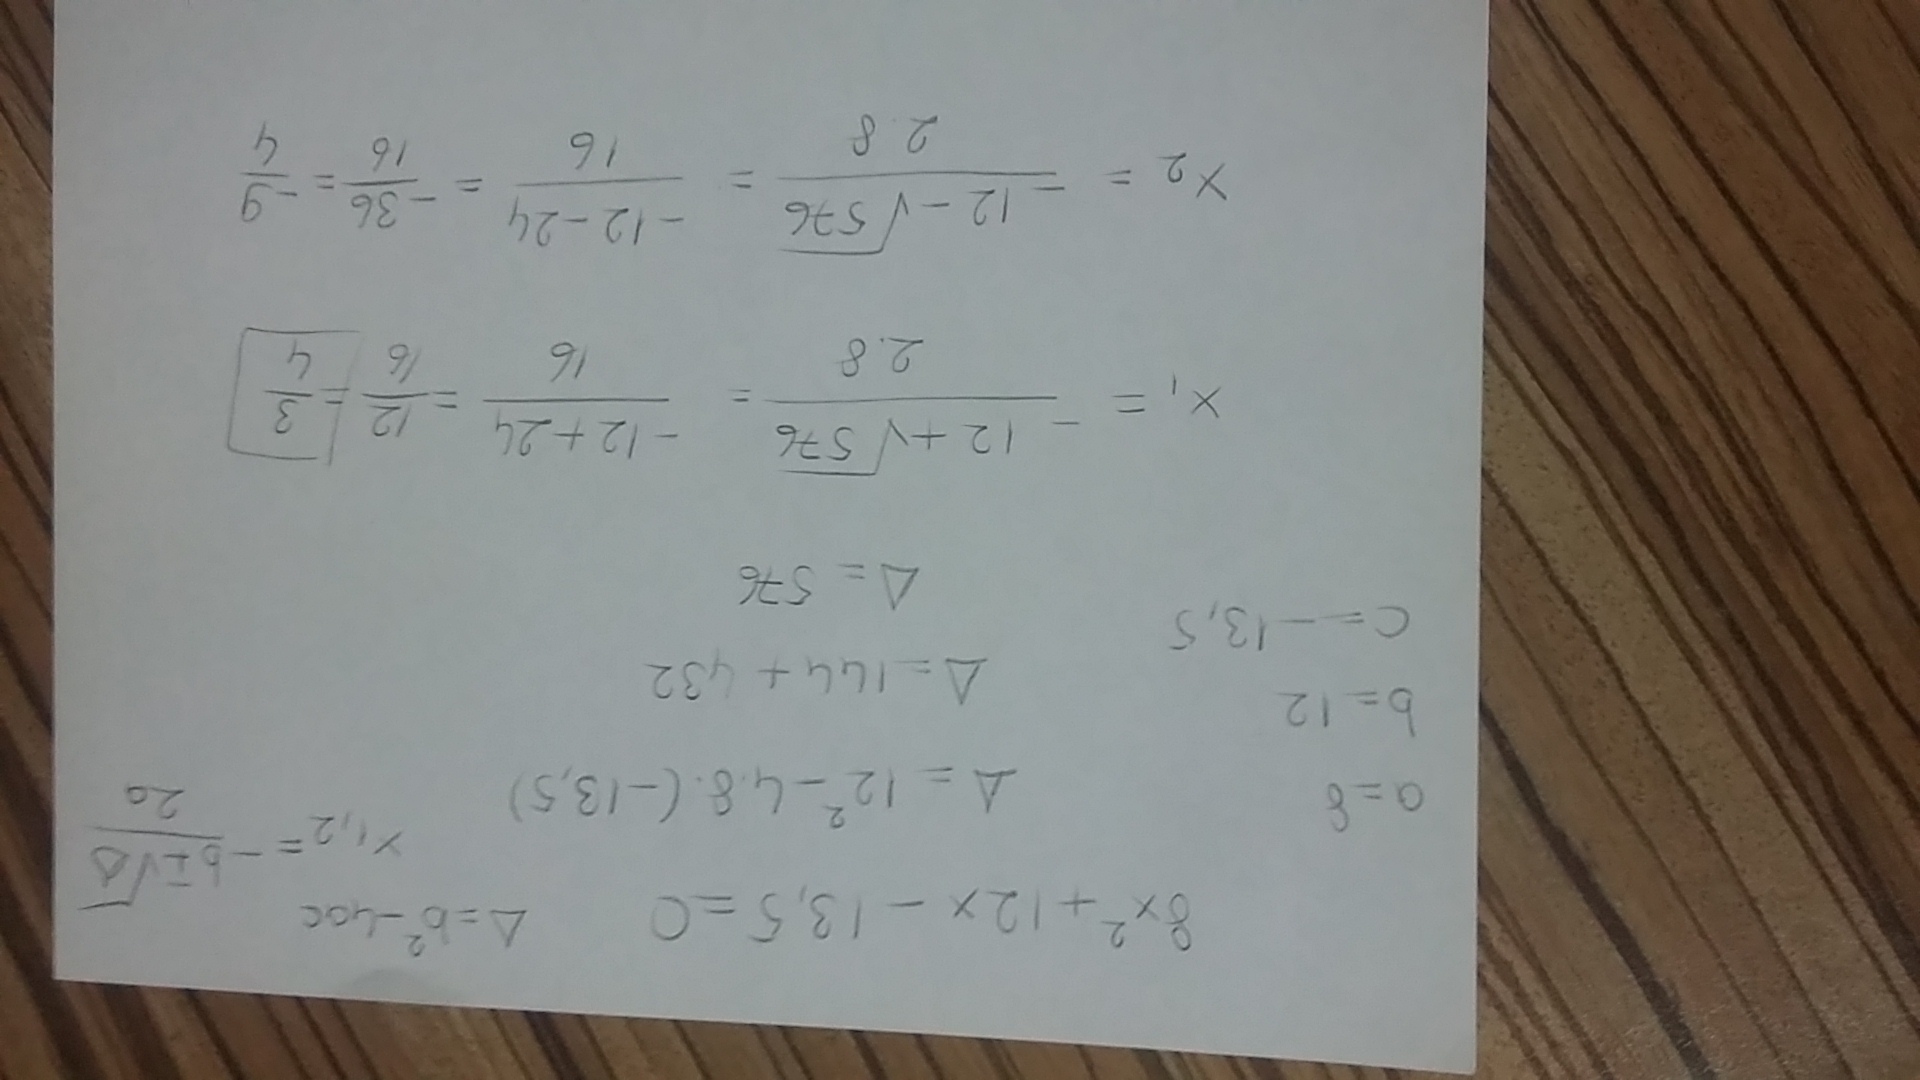 8x² + 12x - 13,5 = 0
Δ = b² - 4ac
x₁,₂ = (-b ± √Δ) / 2a
a = 8
b = 12
c = -13,5
Δ = 12² - 4.8.(-13,5)
Δ = 144 + 432
Δ = 576
x₁ = (-12 + √576) / 2.8 = (-12 + 24) / 16 = 12/16 = 3/4
x₂ = (-12 - √576) / 2.8 = (-12 - 24) / 16 = -36/16 = -9/4